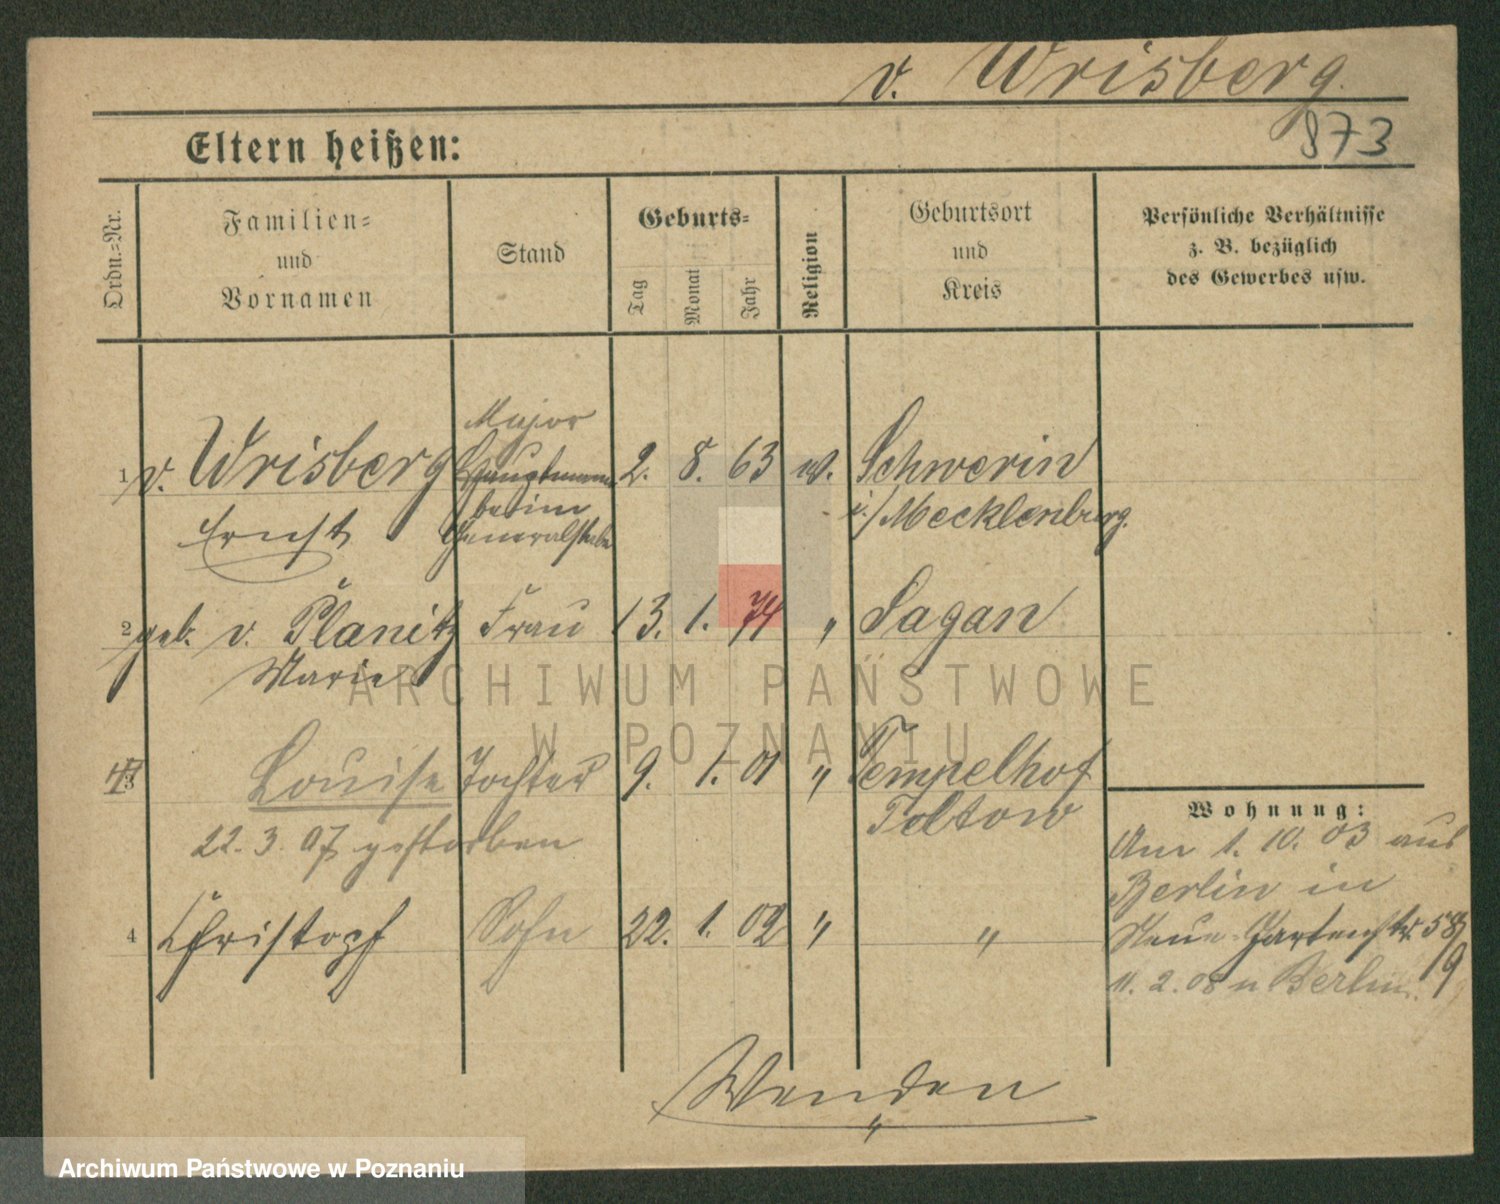 v. Wrisberg.
873
Eltern heißen:
Ordn.=Nr.
Familien=
und
Vornamen
Stand
Geburts=
Tag
Monat
Jahr
Religion
Geburtsort
und
Kreis
Persönliche Verhältnisse
z. B. bezüglich
des Gewerbes usw.
Major
1 v. Wrisberg Hauptmann 2. 8. 63 ev. Schwerin
Ernst beim Generalstabe i./Mecklenburg.
2 geb. v. Planitz Frau 13. 1. 74 " Sagan
Marie
3 Louise Tochter 9. 1. 01 " Tempelhof
Teltow
22. 3. 07 gestorben
4 Christoph Sohn 22. 1. 02 " "
Wohnung:
Am 1. 10. 03 aus
Berlin in
Neue Gartenstr. 58
/9
11. 2. 08 n Berlin.
Wenden
ARCHIWUM PAŃSTWOWE
W POZNANIU
Archiwum Państwowe w Poznaniu